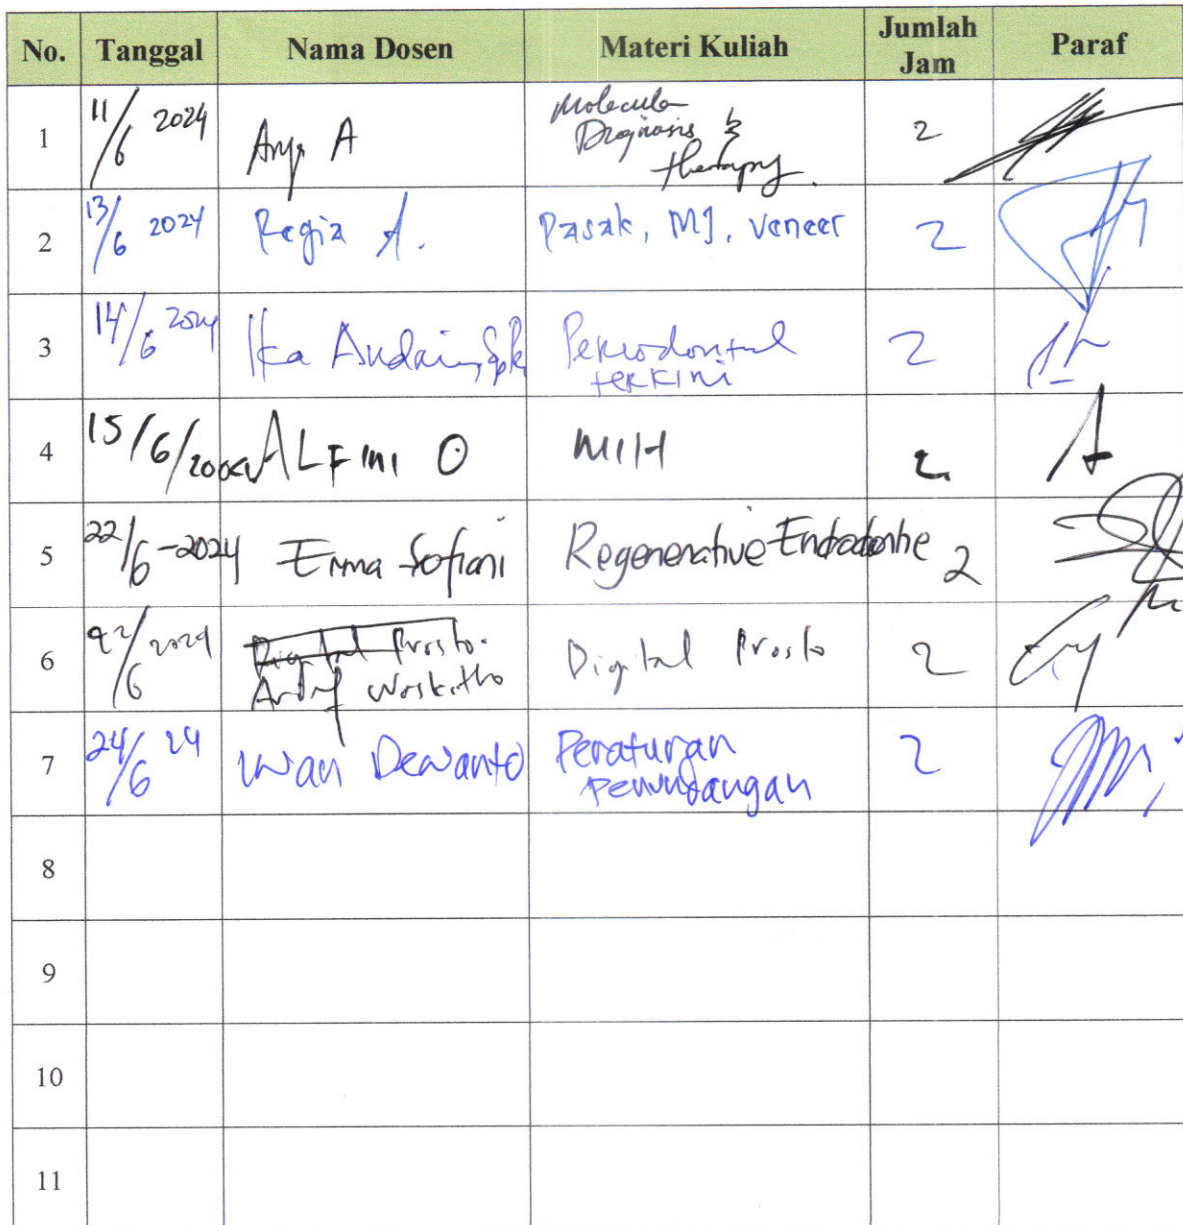 No. Tanggal Nama Dosen Materi Kuliah Jumlah Jam Paraf
1 11/6 2024 Arya A Molecula Diagnosis & therapy. 2
2 13/6 2024 Regia A. Pasak, MJ, Veneer 2
3 14/6 2024 Ika Andriani, SpPerio Periodontal terkini 2
4 15/6/ ALFINI O MIH 2
5 22/6-2024 Erma Sofiani Regenerative Endodontie 2
6 22/6 2024 Digital Prosto. Waskitho Digital Prosto 2
7 24/6 24 Iwan Dewanto Peraturan Perundangan 2
8
9
10
11